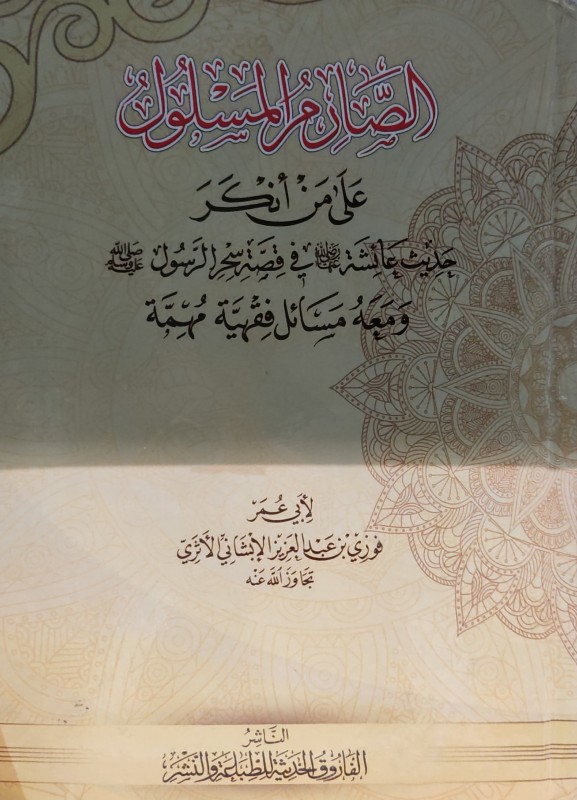 الصَّارِمُ المَسْلُولُ
عَلَى مَنْ أَنْكَرَ
حَدِيثَ عَائِشَةَ رضي الله عنها فِي قِصَّةِ سِحْرِ الرَّسُولِ ﷺ
وَمَعَهُ مَسَائِلُ فِقْهِيَّة مُهِمَّة
لِأَبِي عُمَرَ
فوزي بن عبد العزيز الإبشاني الأثري
تَجَاوَزَ اللَّهُ عَنْهُ
النَّاشِرُ
الفَارُوقُ الحَدِيثَةُ لِلطِّبَاعَةِ وَالنَّشْرِ